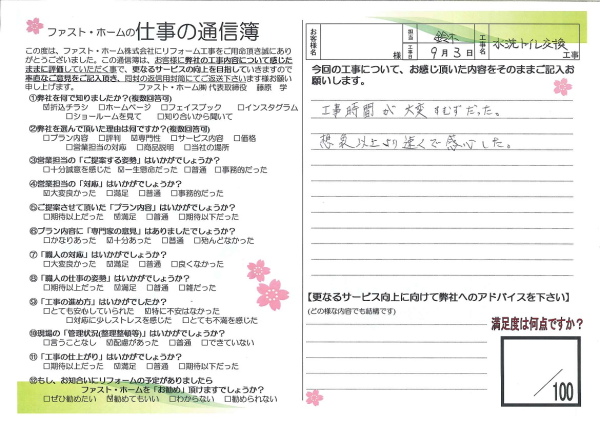 ファスト・ホームの仕事の通信簿
この度は、ファスト・ホーム株式会社にリフォーム工事をご用命頂き誠にあり
がとうございました。この通信簿は、お客様に弊社の工事内容について感じた
ままに評価していただく事で、更なるサービスの向上を目指していきますので
率直なご意見をご記入頂き、同封の返信用封筒にてご返送下さいます様お願い
申し上げます。 ファスト・ホーム㈱ 代表取締役 藤原 学
①弊社を何で知りましたか?(複数回答可)
☑折込チラシ □ホームページ □フェイスブック □インスタグラム
□ショールームを見て □知り合いから聞いて
②弊社を選んで頂いた理由は何ですか?(複数回答可)
□プラン内容 □評判 ☑専門性 □サービス内容 □価格
□営業担当の対応 □商品説明 □当社の場所
③営業担当の「ご提案する姿勢」はいかがでしょうか?
□十分誠意を感じた ☑一生懸命だった □普通 □事務的だった
④営業担当の「対応」はいかがでしょうか?
☑大変良かった □満足 □普通 □事務的だった
⑤ご提案させて頂いた「プラン内容」はいかがでしょうか?
□期待以上だった ☑満足 □普通 □期待以下だった
⑥プラン内容に「専門家の意見」はありましたでしょうか?
□かなりあった ☑十分あった □普通 □殆んどなかった
⑦「職人の対応」はいかがでしょうか?
☑大変良かった □満足 □普通 □良くなかった
⑧「職人の仕事の姿勢」はいかがでしょうか?
☑期待以上だった □満足 □普通 □雑だった
⑨「工事の進め方」はいかがでしたか?
□とても安心していられた ☑特に不安はなかった
□対応に少しストレスを感じた □とても不満を感じた
⑩現場の「管理状況(整理整頓等)」はいかがでしょうか?
□言うことなし ☑配慮があった □普通 □できていない
⑪「工事の仕上がり」はいかがでしょうか?
□期待以上だった ☑満足 □普通 □期待以下だった
⑫もし、お知合いにリフォームの予定がありましたら
ファスト・ホームを「お勧め」頂けますでしょうか?
□ぜひ勧めたい ☑勧めてもいい □わからない □勧められない
お客様名 様 担当 鈴木 工事日 9月3日 工事名 水洗トイレ交換 工事
今回の工事について、お感じ頂いた内容をそのままご記入お
願いします。
工事時間が大変すむずだった。
想象以上より速くで感心した。
【更なるサービス向上に向けて弊社へのアドバイスを下さい】
(どの様な内容でも結構です)
満足度は何点ですか?
/100